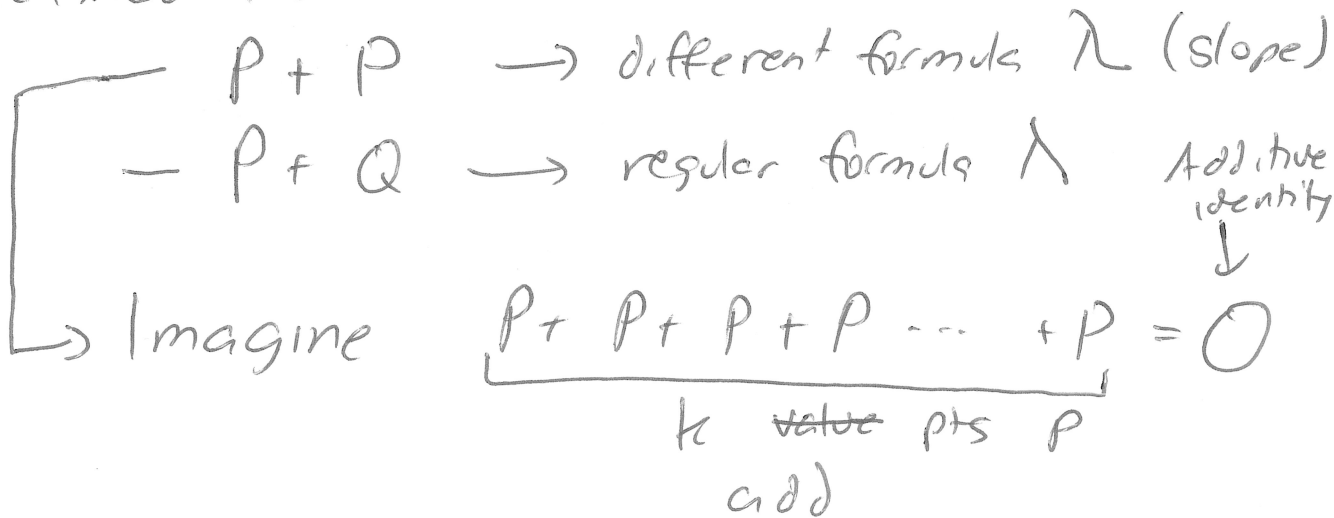 — P + P → different formula λ (slope)
— P + Q → regular formula λ
Additive
identity
↓
→ Imagine P + P + P + P .... + P = O
k value pts P
add